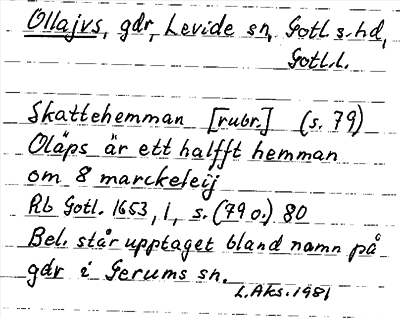 Ollajvs, gdr, Levide sn, Gotl. s. hd,
Gotl. l.
Skattehemman [rubr.] (s. 79)
Oläps är ett halfft hemman
om 8 marckeleij
Rb Gotl. 1653, 1, s. (79 o.) 80
Bel. står upptaget bland namn på
gdr i Gerums sn.
L. Aks. 1981